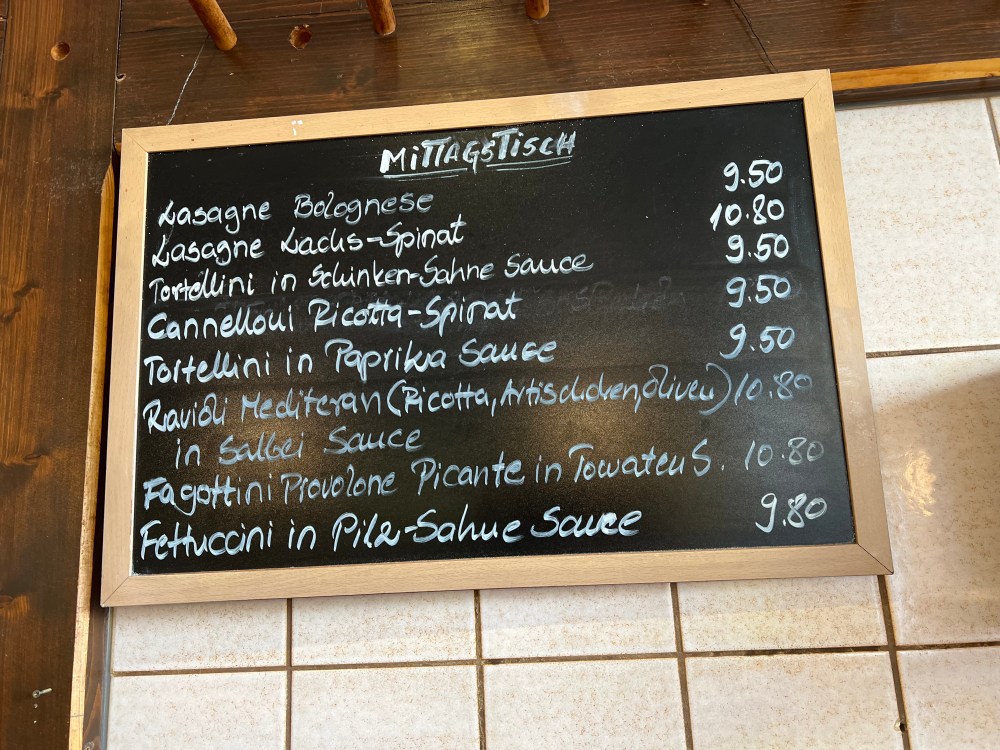 MITTAGSTISCH
Lasagne Bolognese 9.50
Lasagne Lachs-Spinat 10.80
Tortellini in Schinken-Sahne Sauce 9.50
Cannelloni Ricotta-Spinat 9.50
Tortellini in Paprika Sauce 9.50
Ravioli Mediteran (Ricotta, Artischoken, Oliven) 10.80
in Salbei Sauce
Fagottini Provolone Picante in Tomaten S. 10.80
Fettuccini in Pilz-Sahne Sauce 9.80